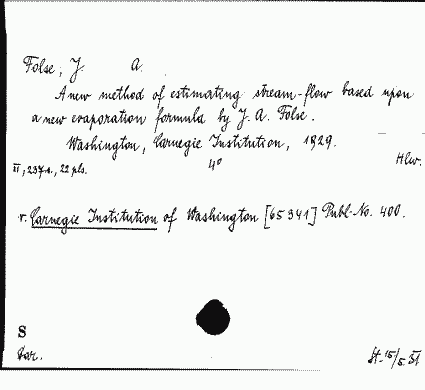 Folse, J. A.
A new method of estimating stream-flow based upon
a new evaporation formula by J. A. Folse.
Washington, Carnegie Institution, 1929.
4° Hlw.
XI, 237 s., 22 pls.
v. Carnegie Institution of Washington [65341] Publ-No. 400.
S
St. 15/5.31